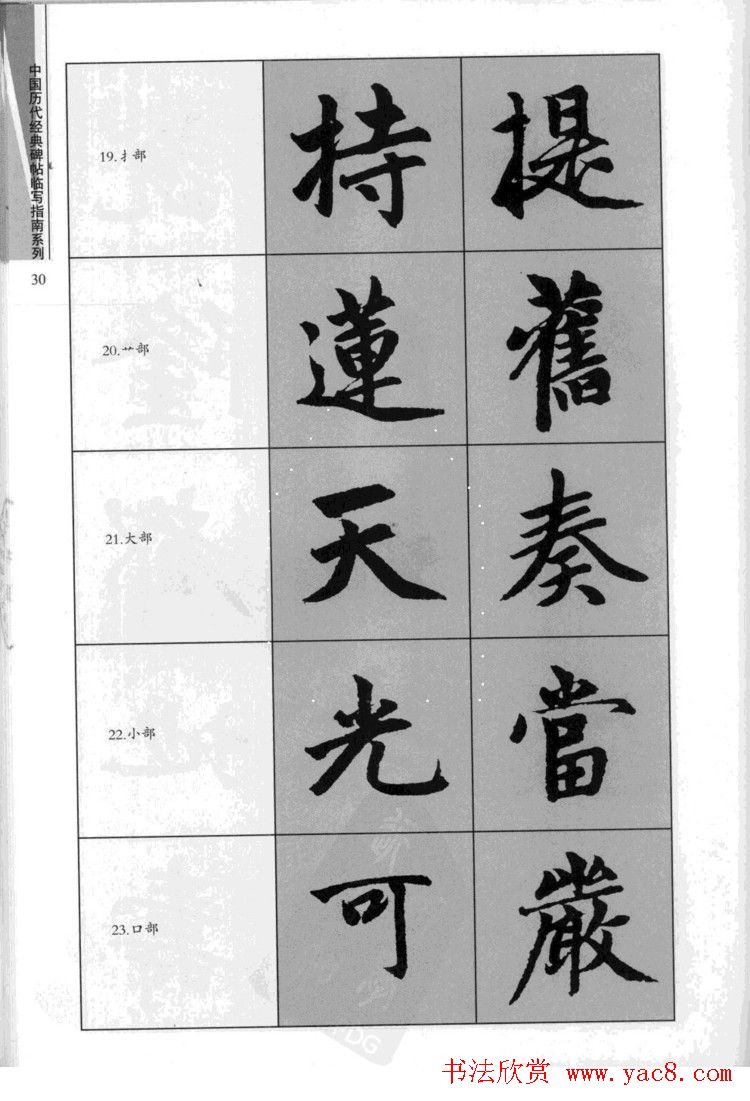 中国历代经典碑帖临写指南系列
30
19.扌部
持 提
20.艹部
蓮 舊
21.大部
天 奏
22.小部
光 當
23.口部
可 嚴
书法欣赏 www.yac8.com